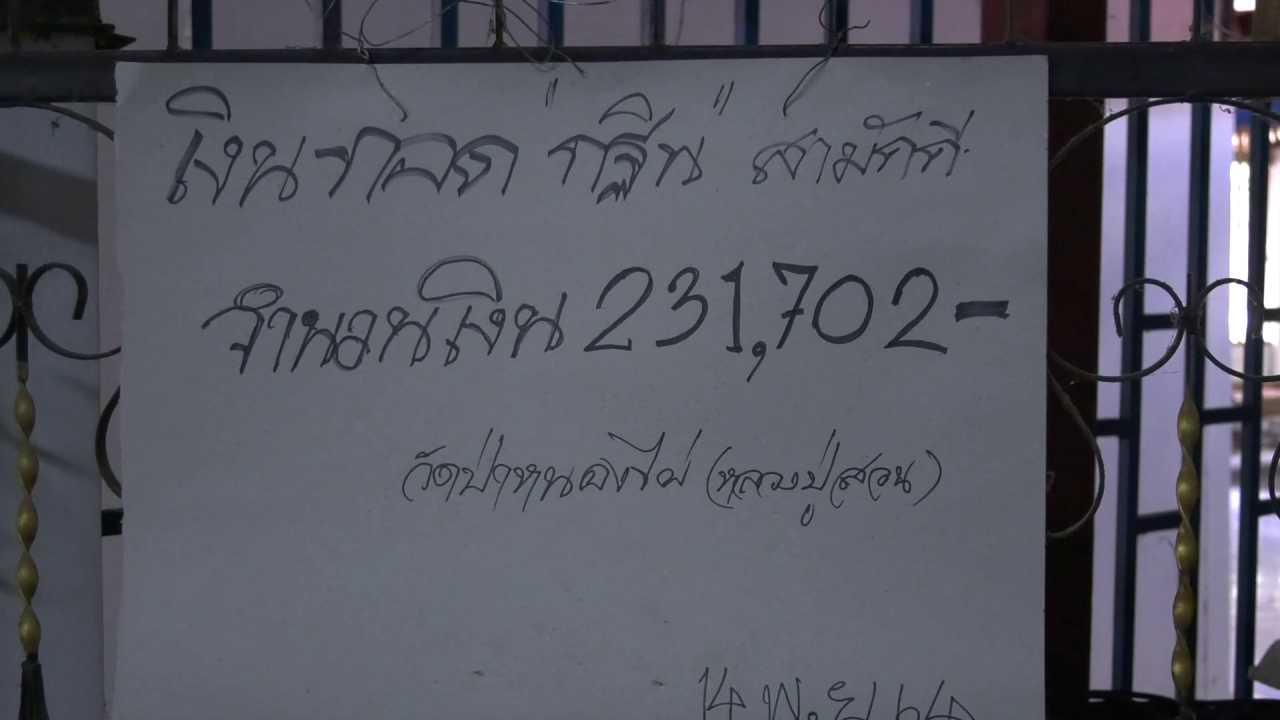 เงินทอด "กฐิน" สามัคคี
จำนวนเงิน 231,702-
วัดป่าหนองไผ่ (หลวงปู่สวน)
14 พ.ย 64